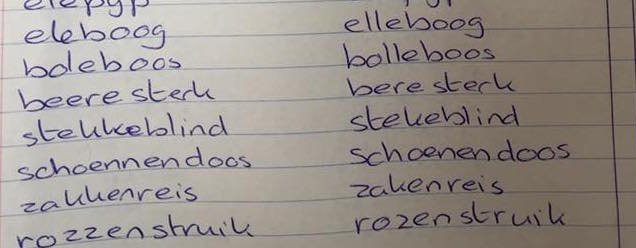 eleboog elleboog
boleboos bolleboos
beeresterk beresterk
stekkeblind stekeblind
schoennendoos schoenendoos
zakkenreis zakenreis
rozzenstruik rozenstruik